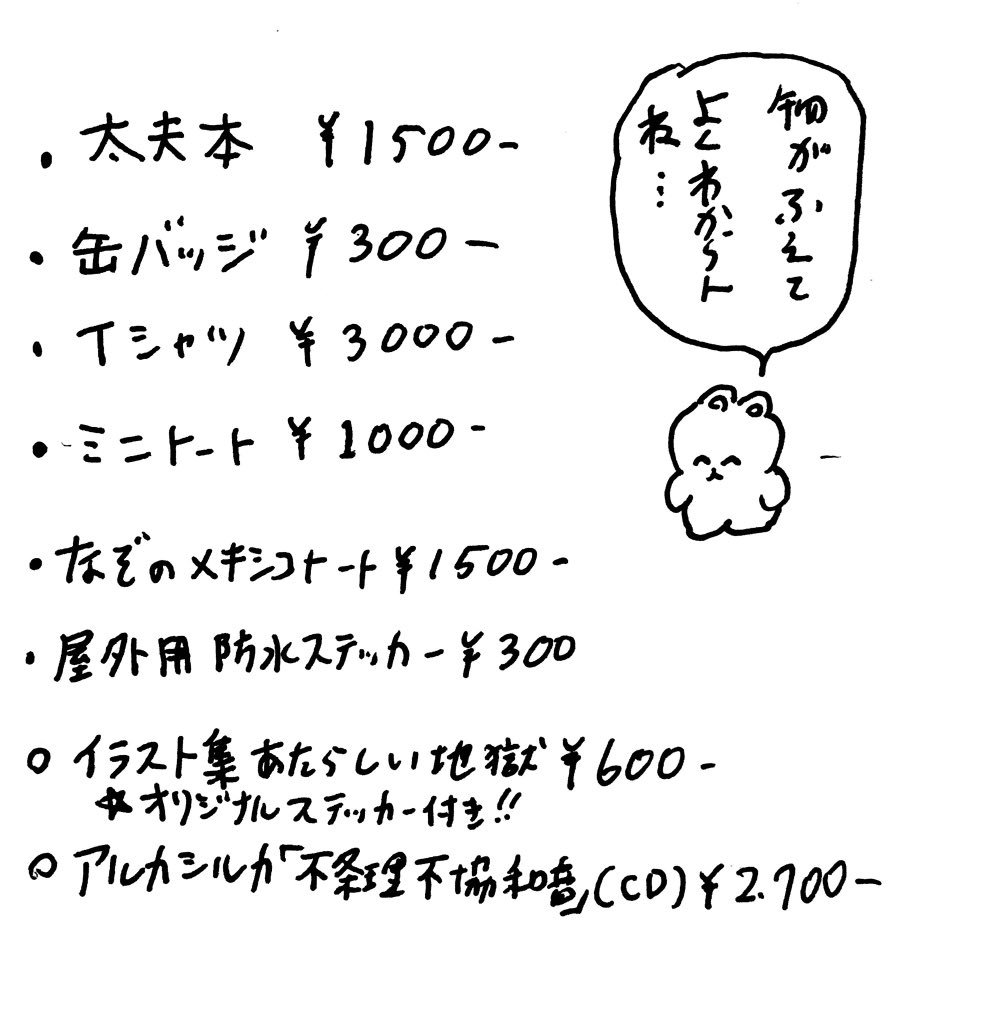 ・太夫本 ¥1500-
・缶バッジ ¥300-
・Tシャツ ¥3000-
・ミニトート ¥1000-
・なぞのメキシコトート¥1500-
・屋外用 防水ステッカー¥300
○ イラスト集 あたらしい地獄¥600-
☆オリジナルステッカー付き!!
○ アルカシルカ「不条理不協和音」(CD)¥2.700-
がふえて
よくわからん
ね…